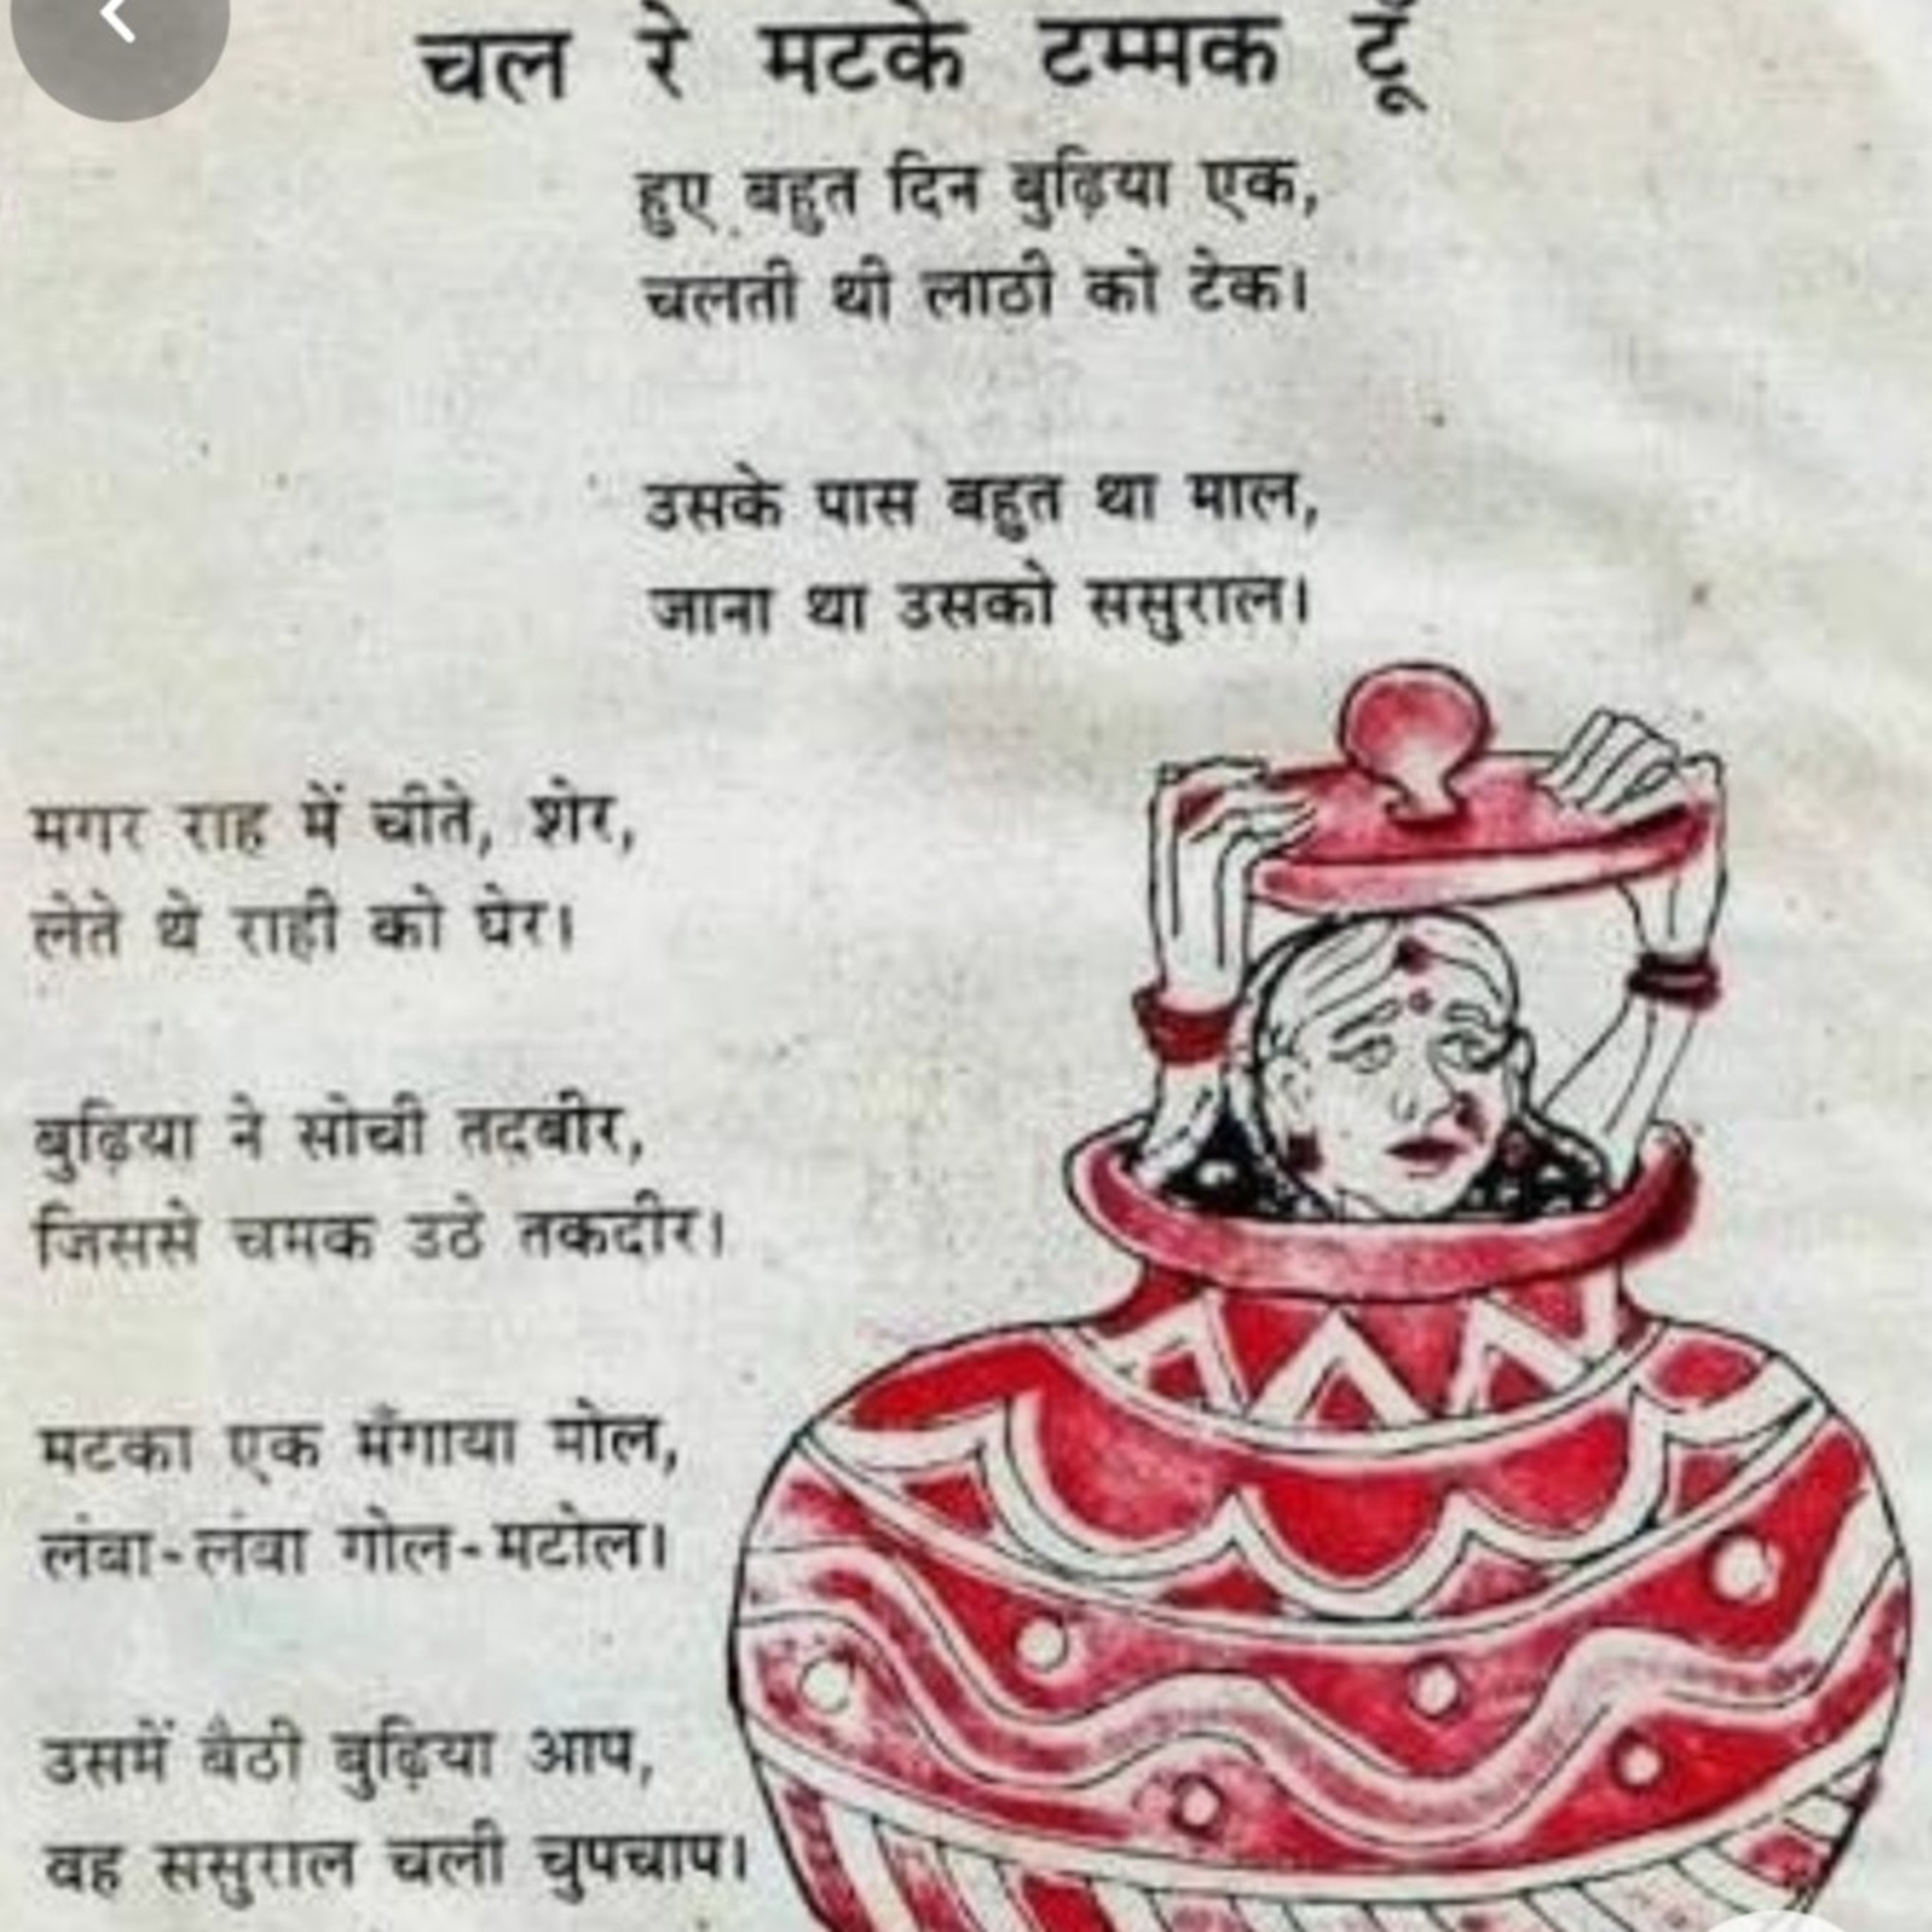 चल रे मटके टम्मक टूँ
हुए बहुत दिन बुढ़िया एक,
चलती थी लाठी को टेक।
उसके पास बहुत था माल,
जाना था उसको ससुराल।
मगर राह में चीते, शेर,
लेते थे राही को घेर।
बुढ़िया ने सोची तदबीर,
जिससे चमक उठे तकदीर।
मटका एक मँगाया मोल,
लंबा-लंबा गोल-मटोल।
उसमें बैठी बुढ़िया आप,
वह ससुराल चली चुपचाप।